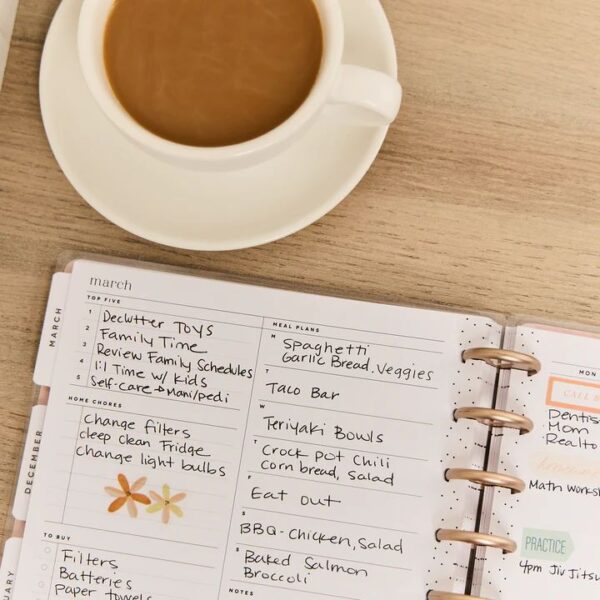 MARCH
DECEMBER
march
TOP FIVE
1 Declutter TOYS
2 Family Time
3 Review Family Schedules
4 1:1 Time w/ Kids
5 Self-care → Mani/pedi
HOME CHORES
change filters
deep clean Fridge
change light bulbs
TO BUY
Filters
Batteries
Paper towels
MEAL PLANS
M Spaghetti
Garlic Bread. veggies
T Taco Bar
W Teriyaki Bowls
T Crock pot chili
corn bread, salad
F Eat out
S BBQ-chicken, salad
S Baked Salmon
Broccoli
NOTES
MON
CALL
Mom
Math
PRACTICE
4pm Jiu Jitsu